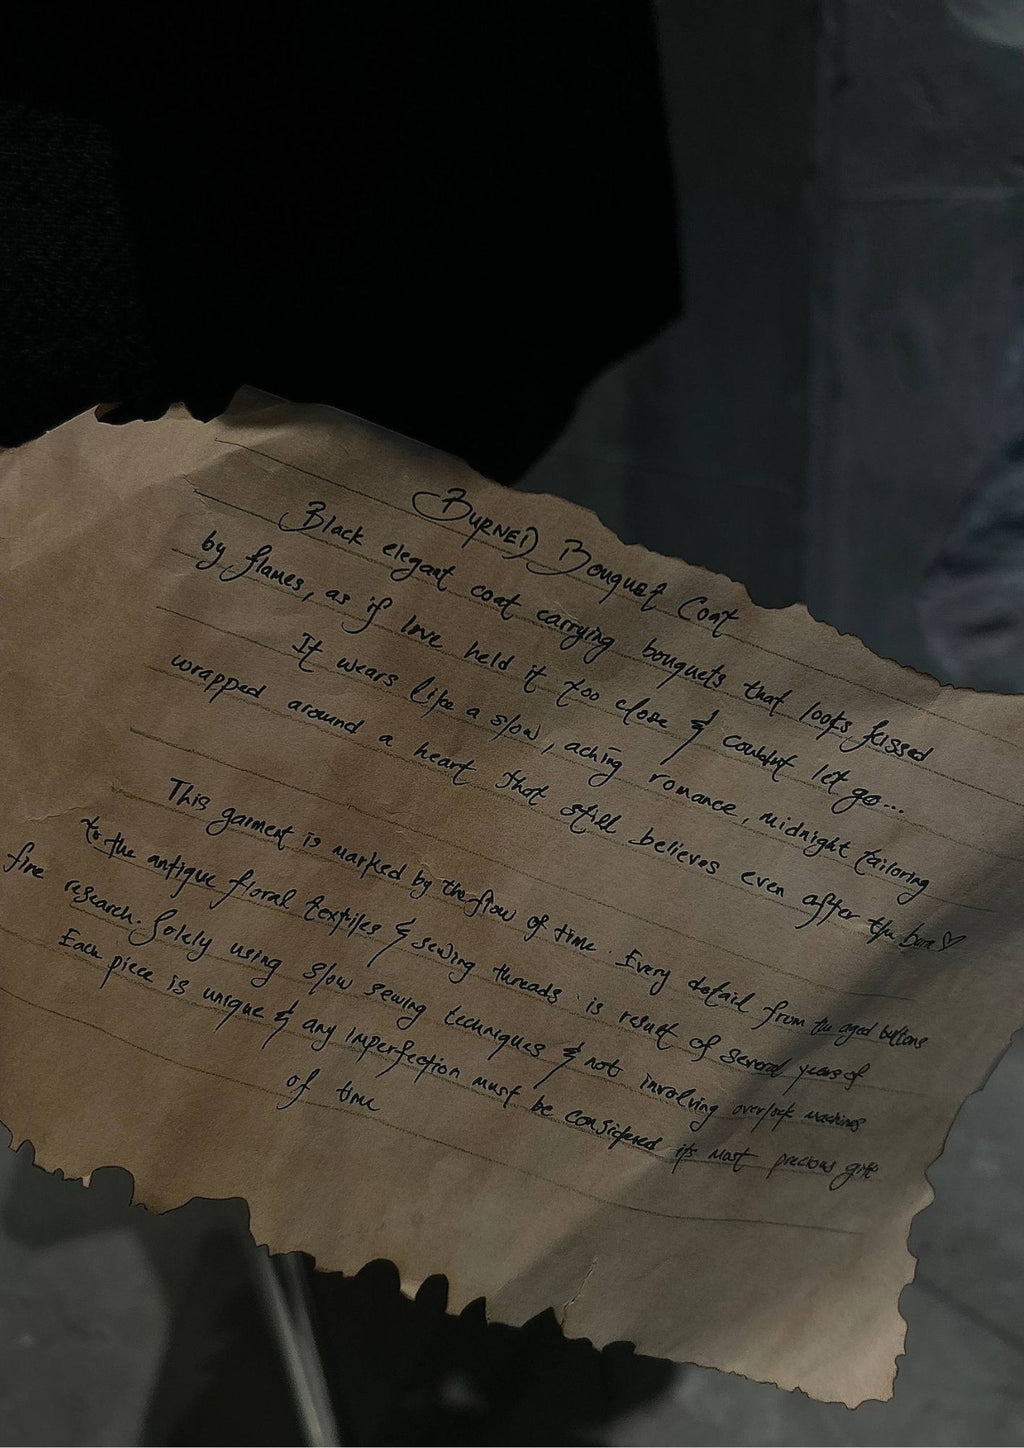 Burned Bouquet Coat
Black elegant coat carrying bouquets that looks kissed
by flames, as if love held it too close & couldnt let go...
It wears like a slow, aching romance, midnight tailoring
wrapped around a heart that still believes even after the burn♡
This garment is marked by the flow of time. Every detail from the aged buttons
to the antique floral textiles & sewing threads is result of several years of
fine research. Solely using slow sewing techniques & not involving overlock machines
Each piece is unique & any imperfection must be considered its most precious gift
of time